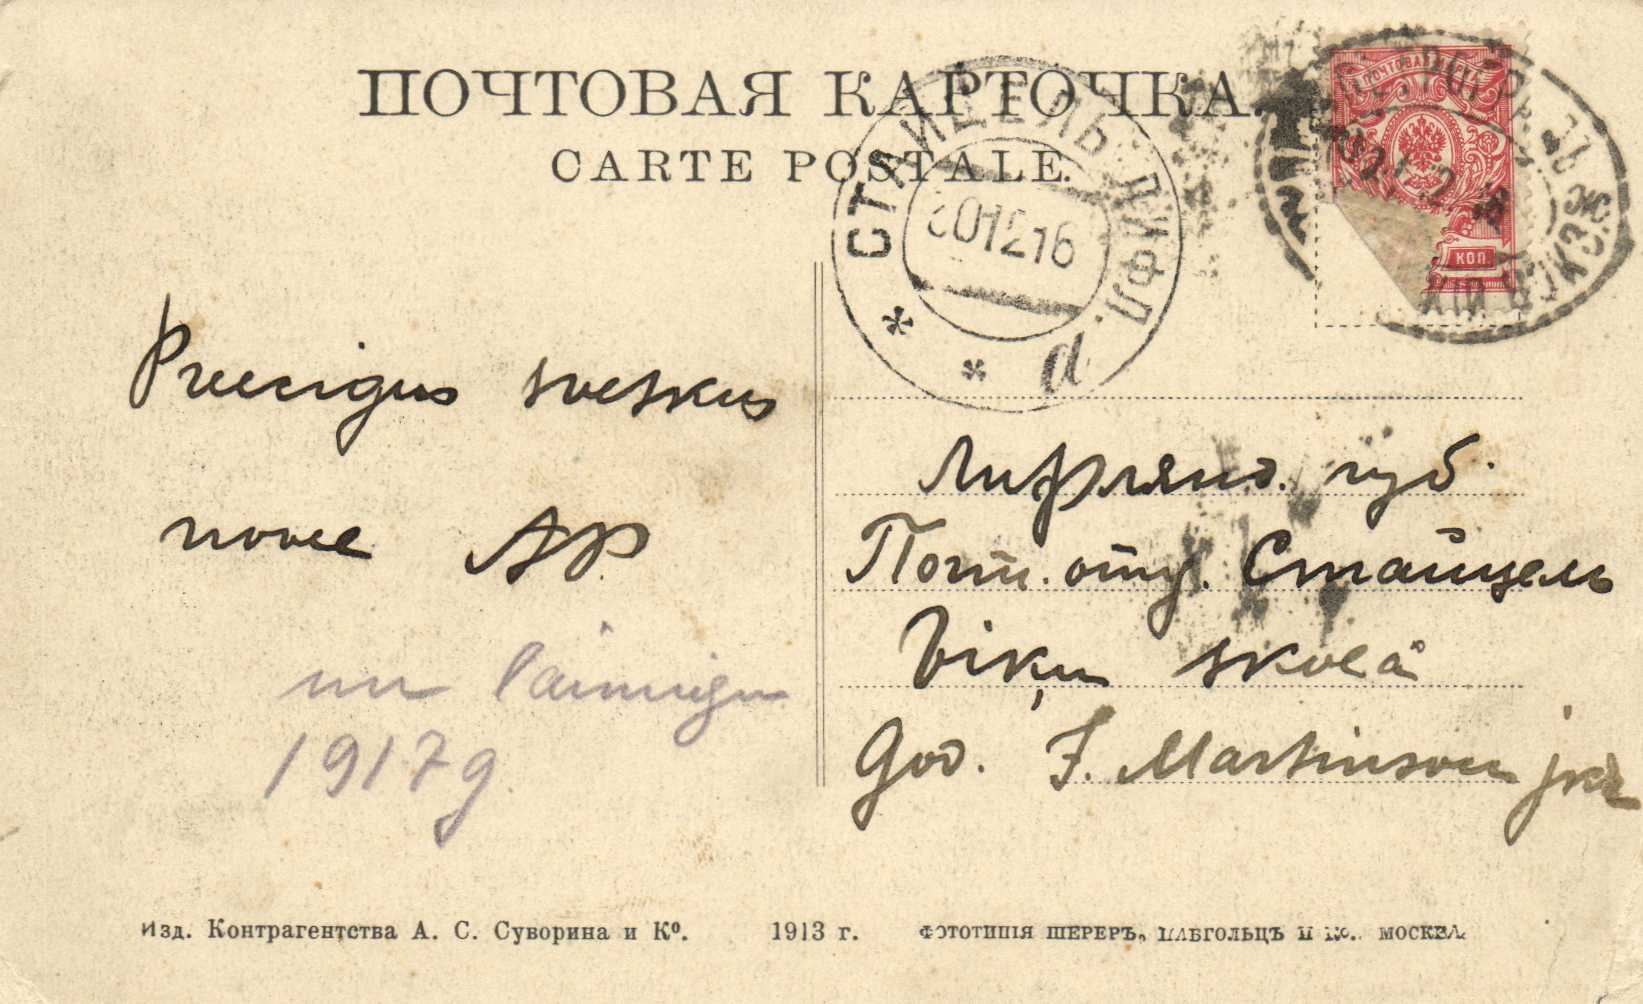 ПОЧТОВАЯ КАРТОЧКА.
CARTE POSTALE.
СТАЙЦЕЛЬ ЛИФЛ.
301216
a
КОП.
Preecigus svetkus
novel AP.
un laimigu
1917g.
Лифлянд. губ.
Почт. отд. Стайцель
Viķu skolā
God. J. Martinson jkz
Изд. Контрагентства А. С. Суворина и Кº.
1913 г.
ФОТОТИПІЯ ШЕРЕРЪ, НАБГОЛЬЦЪ И Ко. МОСКВА.